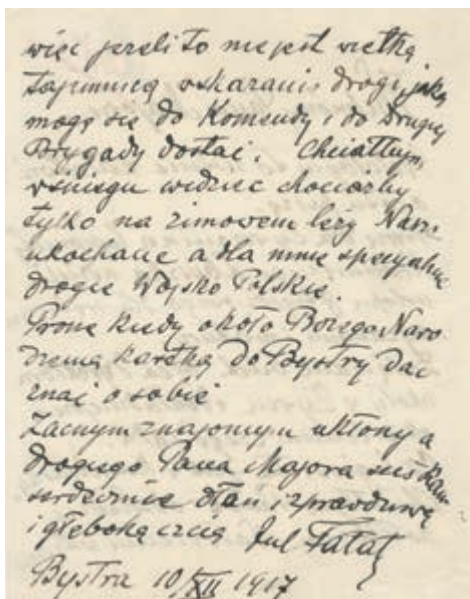 więc jeżeli to nie jest wielką
tajemnicą wskazanie drogi, jaką
mogę się do Komendy i do Drugiej
Brygady dostać. Chciałbym
w śniegu widzieć chociażby
tylko na zimowem leży Nasze
ukochane a dla mnie specyalnie
drogie Wojsko Polskie.
Proszę kiedy około Bożego Naro
dzenia kartką do Bystry dać
znać o sobie
Zacnym znajomym ukłony a
drogiego Pana Majora ściskam
serdecznie dłoń i z prawdziwą
i głęboką czcią Jul Fałat
Bystra 10/XII 1917